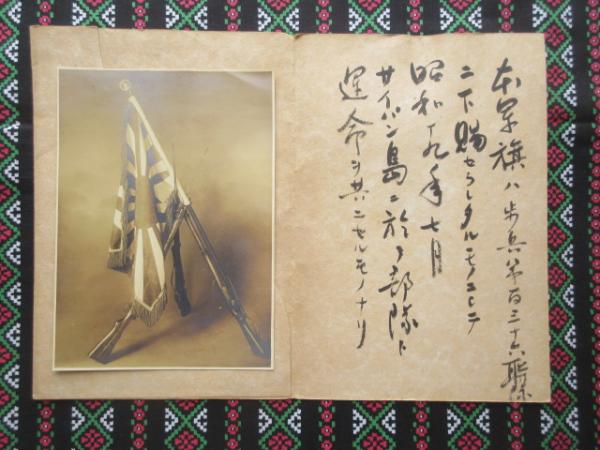 本軍旗ハ歩兵第百三十六聯隊
ニ下賜セラレタルモノニシテ
昭和十九年七月
サイパン島ニ於テ部隊ト
運命ヲ共ニセルモノナリ